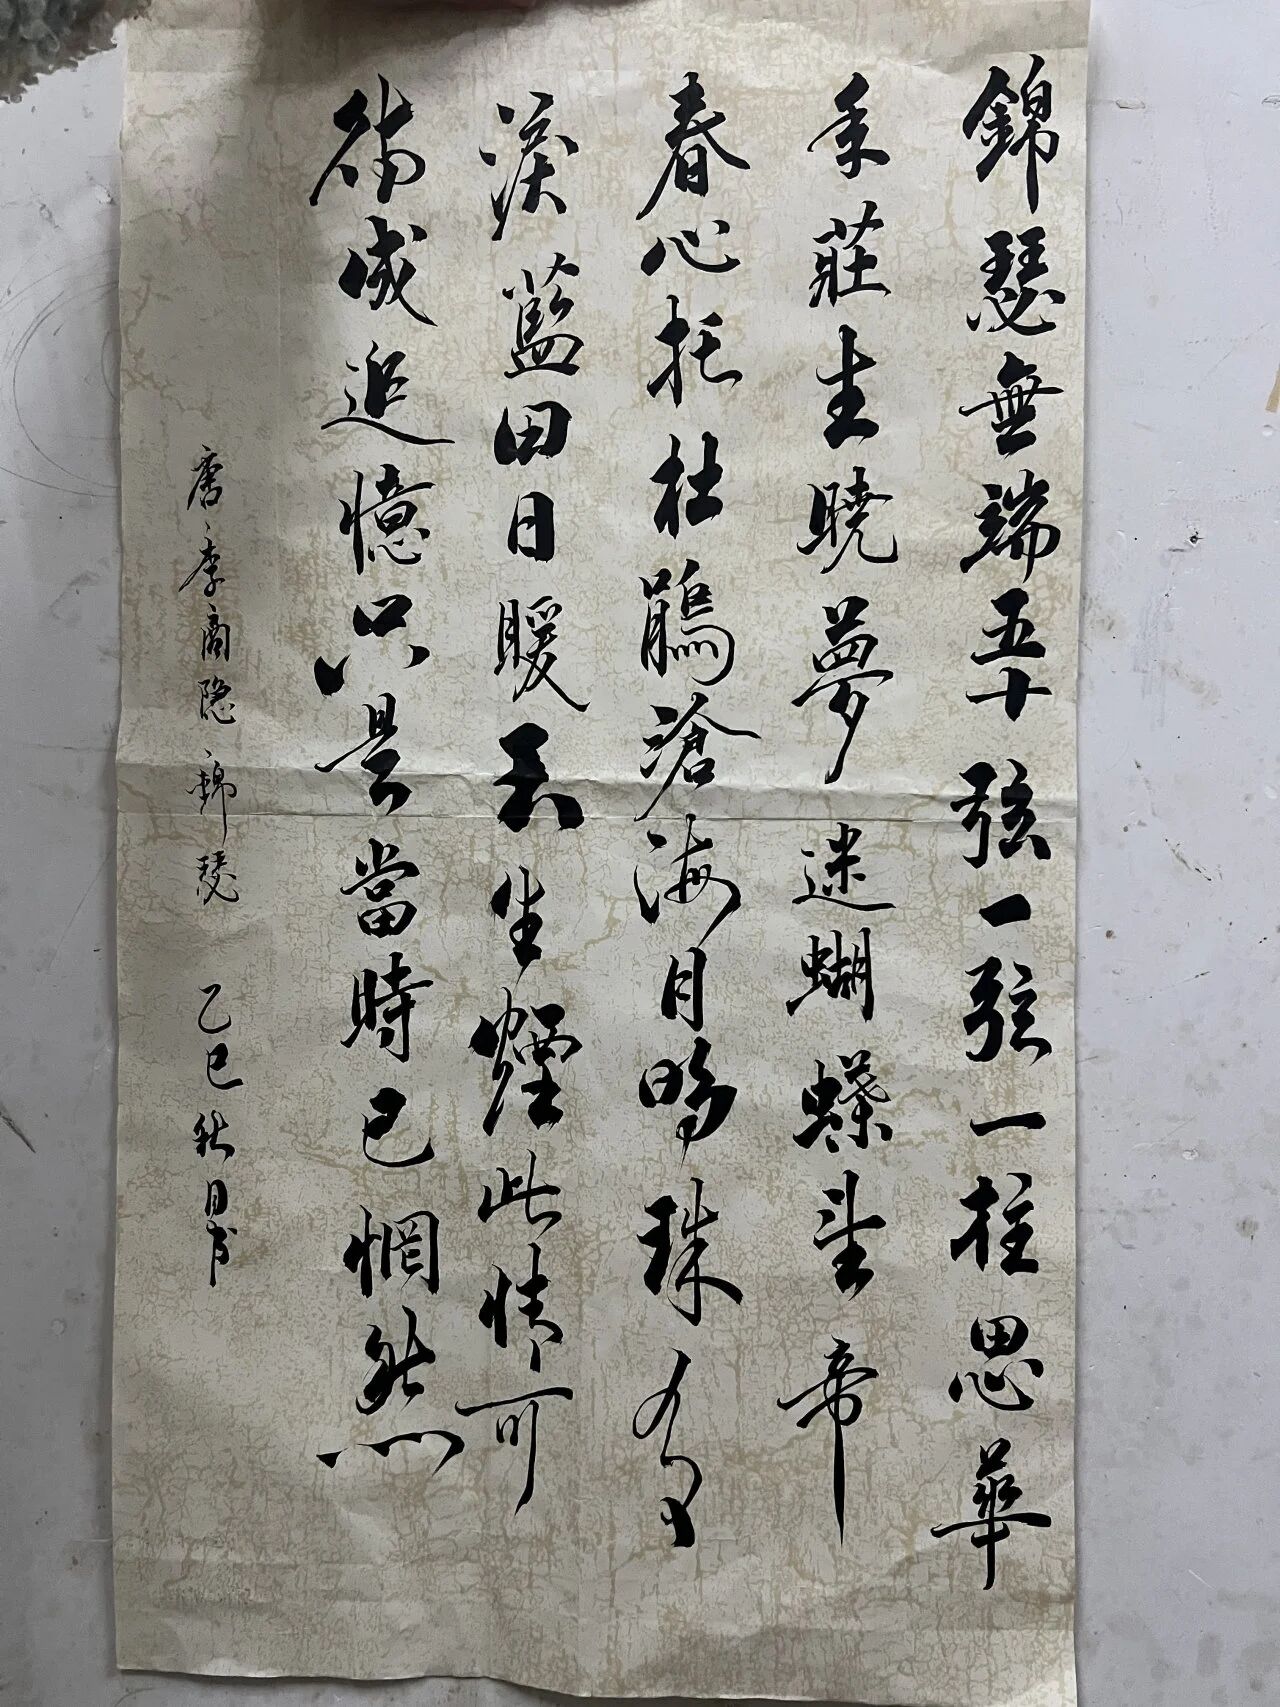 錦瑟無端五十弦一弦一柱思華
年莊生曉夢迷蝴蝶望帝
春心托杜鵑滄海月明珠有
淚藍田日暖玉生煙此情可
待成追憶只是當時已惘然
唐李商隐錦瑟 乙巳秋月書